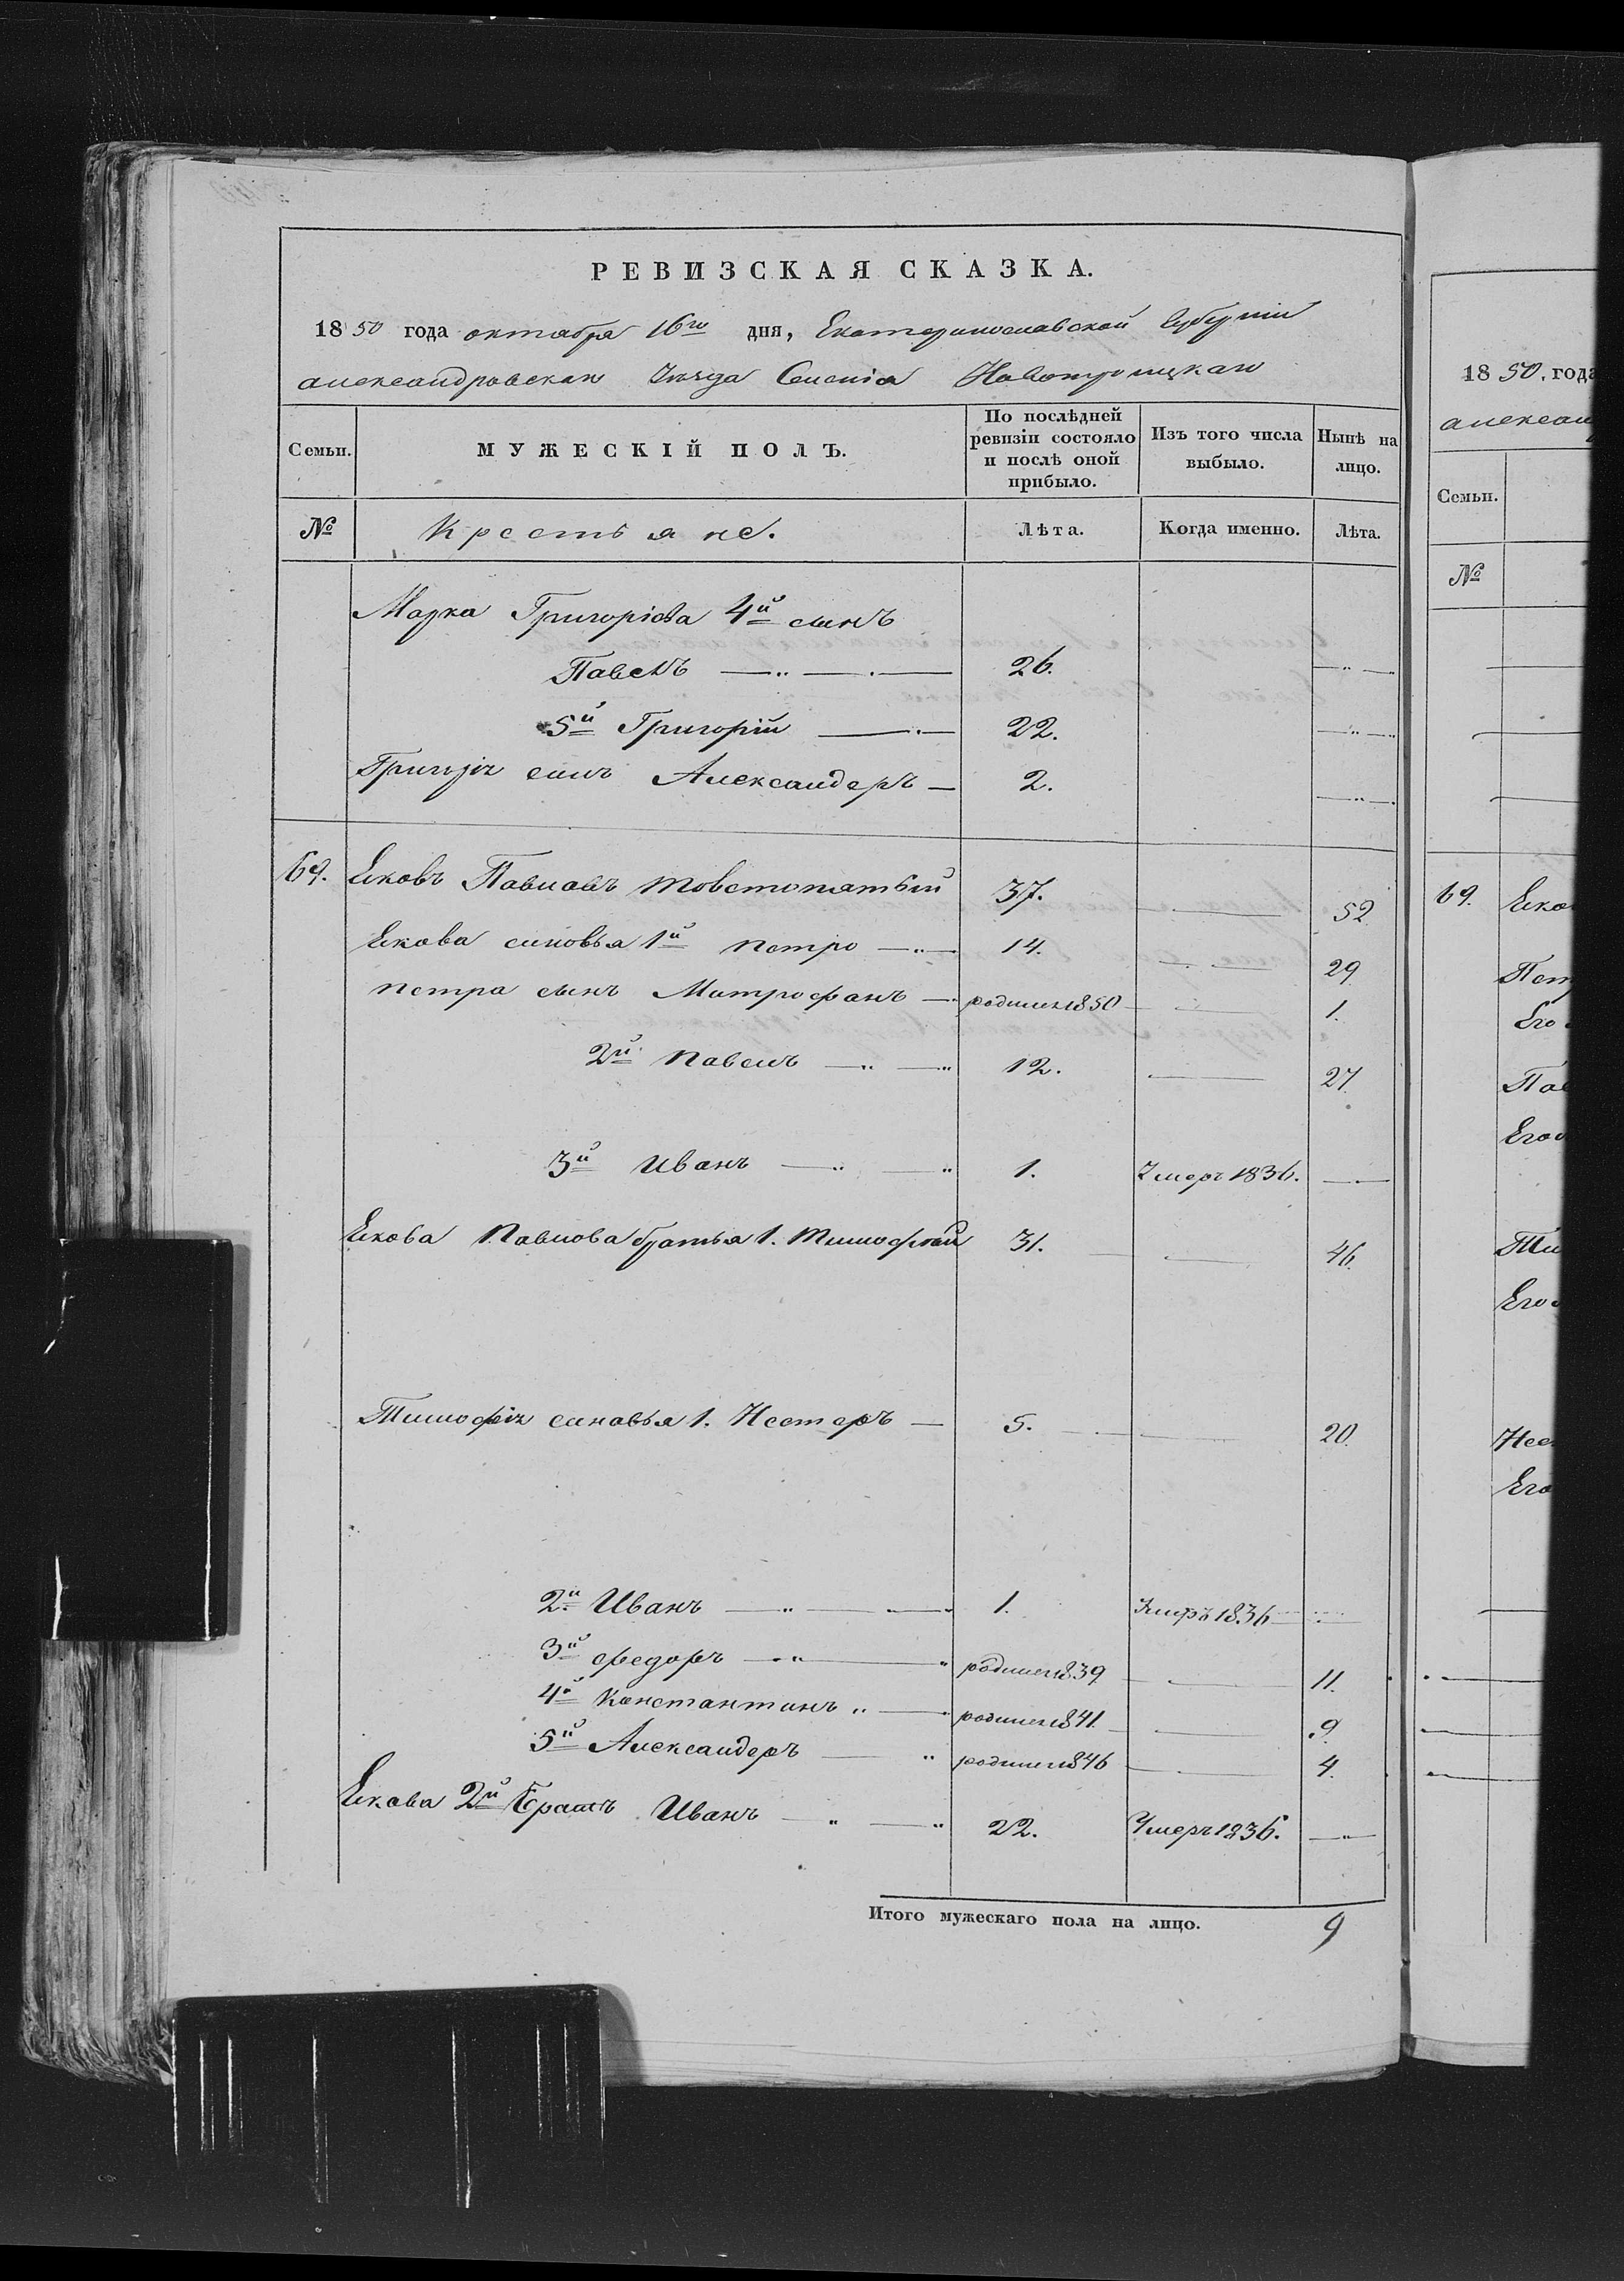 РЕВИЗСКАЯ СКАЗКА.
1850 года октября 16го дня, Екатеринославской Губерніи
александровскаго Уѣзда Селенія Новотроицкаго
Семьи. МУЖЕСКІЙ ПОЛЪ. По послѣдней ревизіи состояло и послѣ оной прибыло. Изъ того числа выбыло. Нынѣ на лицо.
№ Крестьяне. Лѣта. Когда именно. Лѣта.
Марка Григоріева 4й сынъ
Павелъ 26.
5й Григорій 22.
Григорія сынъ Александеръ 2.
69. Яковъ Павловъ Товстопятый 37. 52
Якова сыновья 1й петро 14. 29
петра сынъ Митрофанъ родился 1850 1.
2й Павелъ 12. 27.
3й Иванъ 1. Умеръ 1836.
Якова Павлова братья 1. Тимофѣй 31. 46.
Тимофія сыновья 1. Нестеръ 5. 20.
2й Иванъ 1. Умеръ 1836
3й федоръ родился 1839 11.
4й Константинъ родился 1841. 9.
5й Александеръ родился 1846 4.
Якова 2й Братъ Иванъ 22. Умеръ 1836.
Итого мужескаго пола на лицо. 9
1850. года
александ
Семьи.
№
69. Яко
Пет
Его
Пав
Его
Ти
Его
Нес
Его